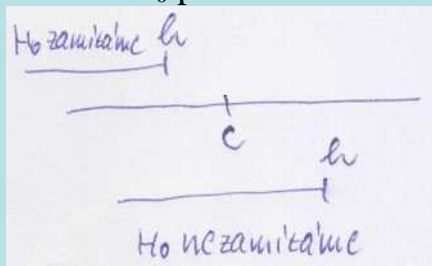 H₀ zamítáme h
c
h
H₀ nezamítáme